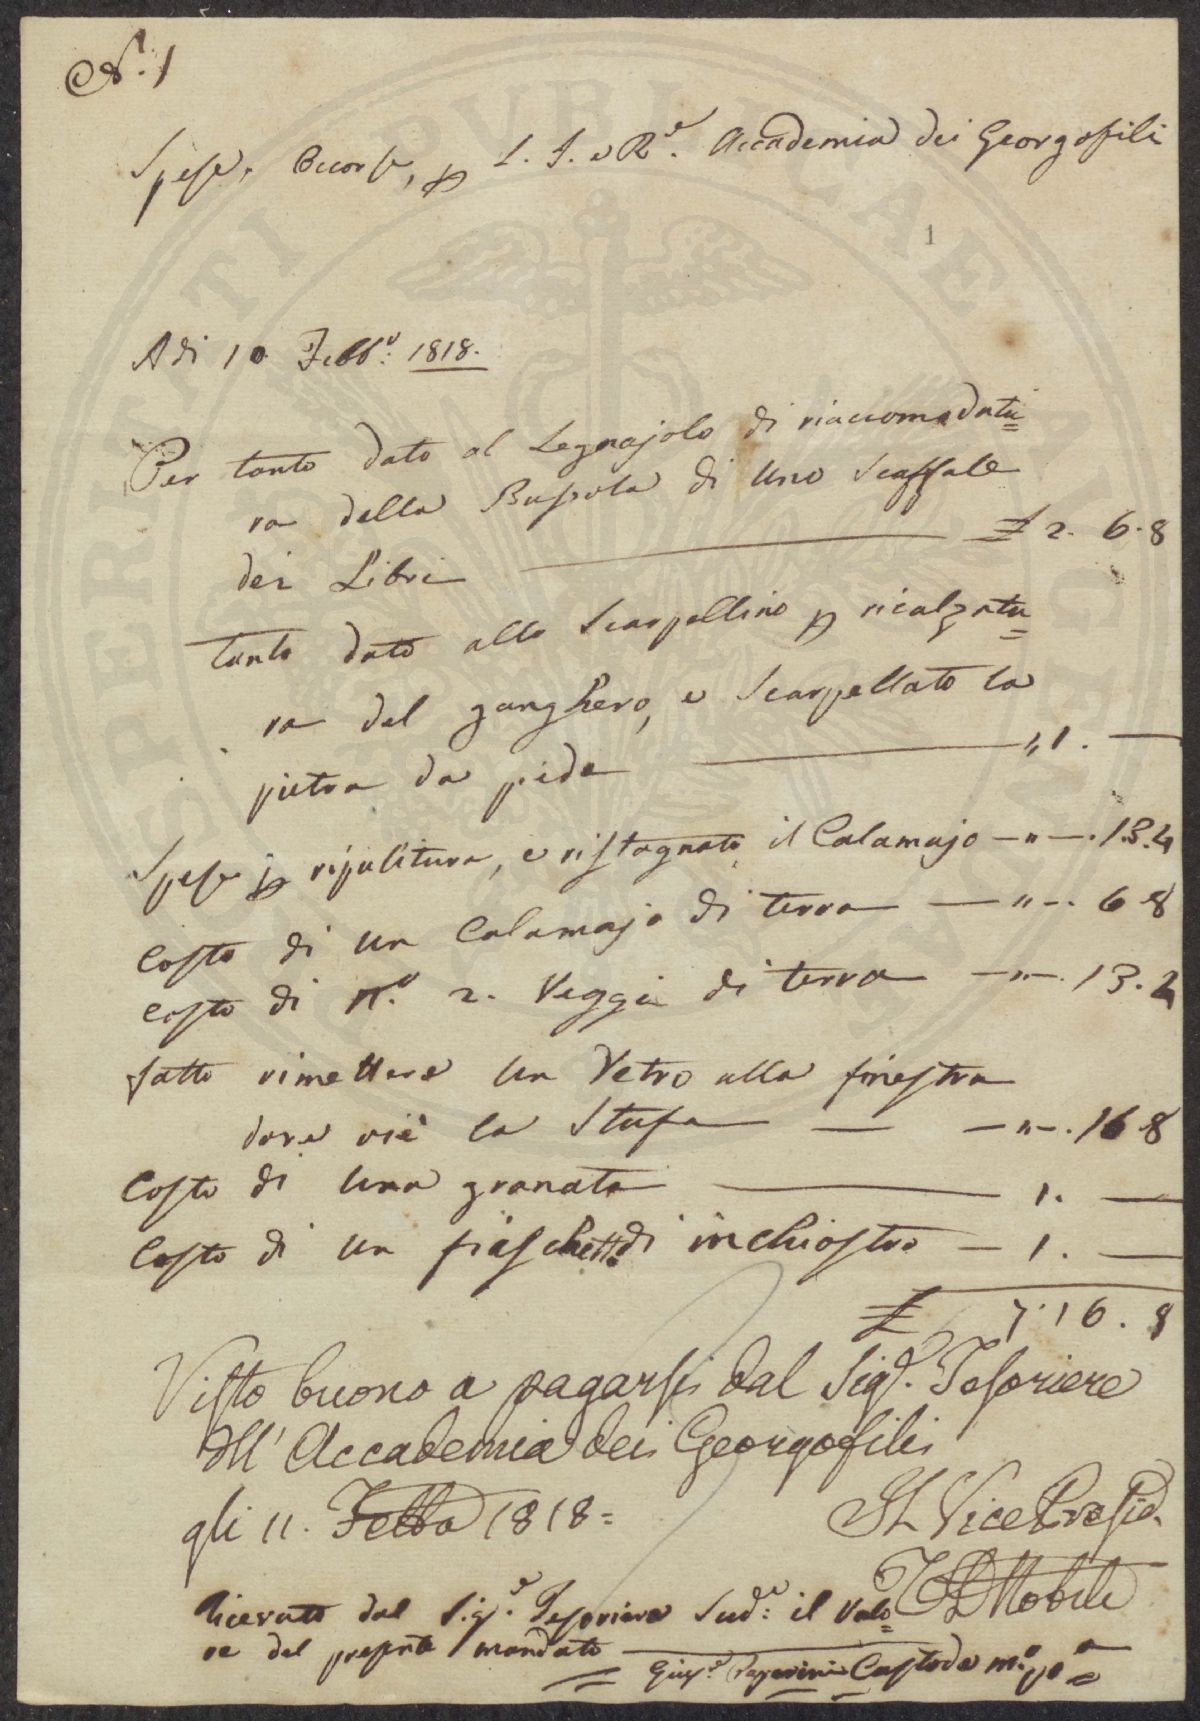 N. 1
Spese, Occorse, p L. I. e R.e Accademia dei Georgofili
1
A di 10 Febb.o 1818.
Per tanto dato al Legnajolo di riaccomodatu=
ra della Bussola di Uno Scaffale
dei Libri £ 2. 6. 8
tanto dato allo Scarpellino p ricalzatu=
ra del ganghero, e Scarpellato la
pietra da piede " 1. —
Spese p ripulitura, e ristagnato il Calamajo — " — . 13. 4
Costo di un Calamajo di terra — " — . 6 8
Costo di N.o 2. Veggi di terra — " — . 13. 4
fatto rimettere un Vetro alla finestra
dove vi è la Stufa — — " — . 16 8
Costo di una granata — 1. —
Costo di un fiaschetto di inchiostro — 1. —
£ 7. 16. 8
Visto buono a pagarsi dal Sig.r Tesoriere
dell' Accademia dei Georgofili
gli 11. Febbo 1818 =
Il Vice Presid.
Ricevuto dal Sig.e Tesoriere Sud.o il Valo=
re del presente mandato
Gius.e Paperini Custode m.o pp.a